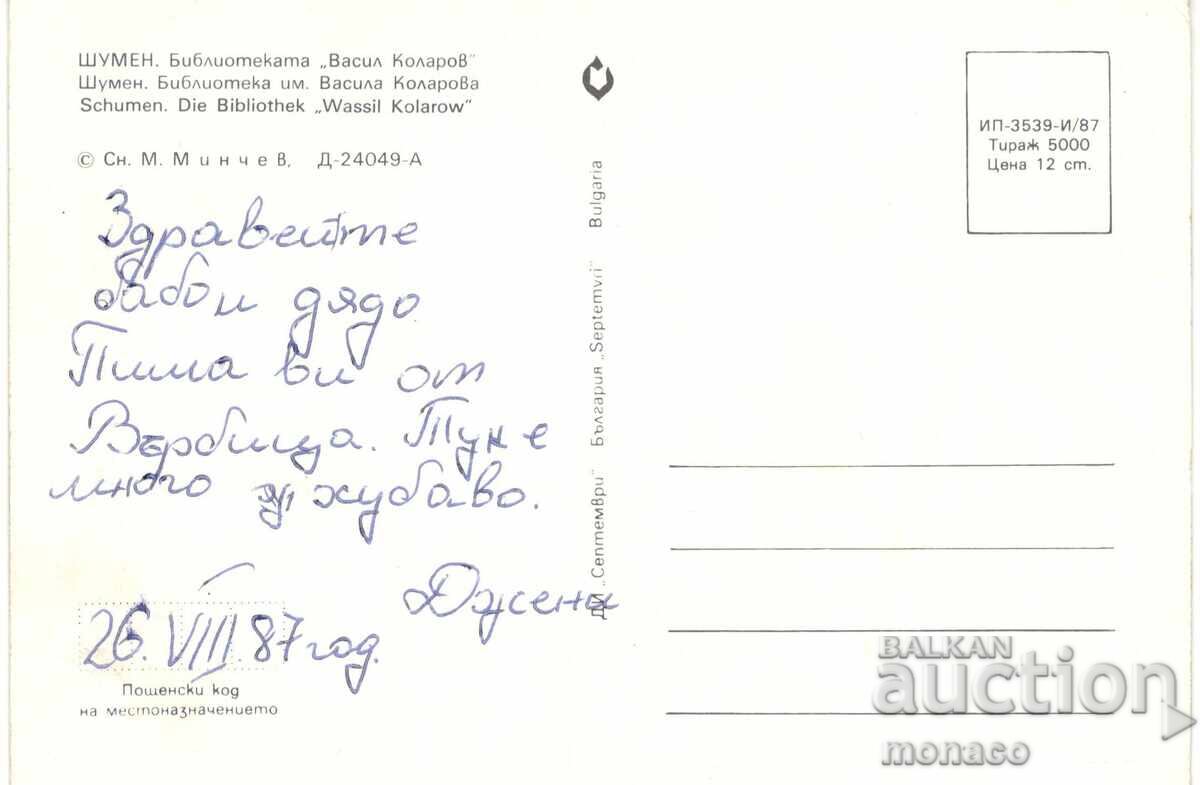 ШУМЕН. Библиотеката „Васил Коларов"
Шумен. Библиотека им. Васила Коларова
Schumen. Die Bibliothek „Wassil Kolarow"
© Сн. М. Минчев, Д-24049-А
Здравейте
бабо и дядо
Пиша ви от
Върбица. Тук е
много хубаво.
Джени
26. VIII. 87 год.
Пощенски код
на местоназначението
ДИ „Септември" България „Septemvri" Bulgaria
ИП-3539-И/87
Тираж 5000
Цена 12 ст.
BALKAN
auction
monaco